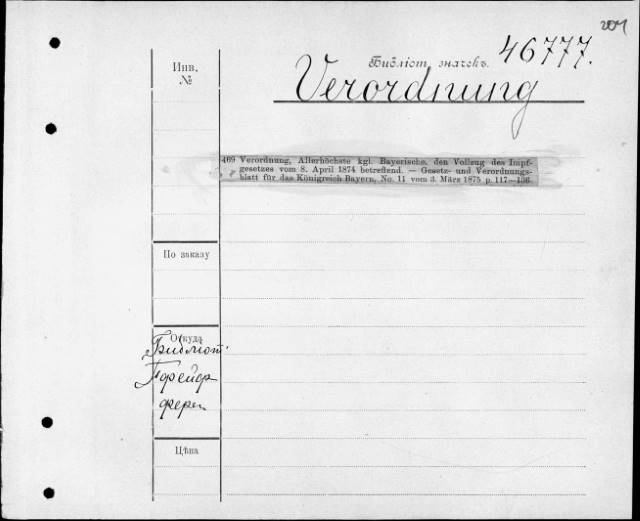 204
46777.
Инв.
№
Библіот. значекъ.
Verordnung
469 Verordnung, Allerhöchste kgl. Bayerische, den Vollzug des Impf-
gesetzes vom 8. April 1874 betreffend. — Gesetz- und Verordnungs-
blatt für das Königreich Bayern, No. 11 vom 3. März 1875 p. 117—136.
По заказу
Откуда
Библіот.
Цѣна